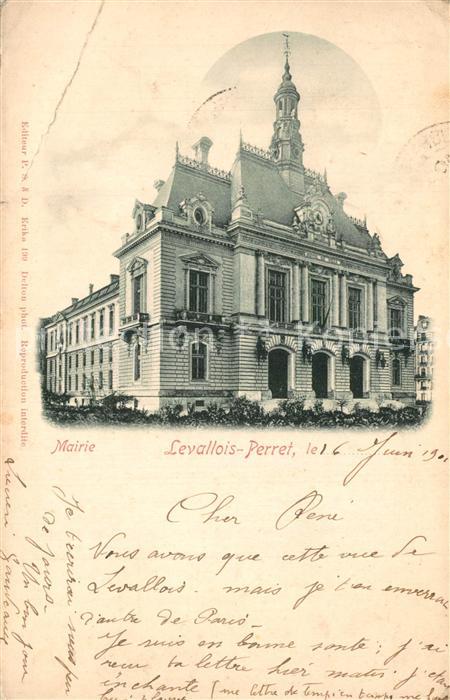 Editeur P. S. à D. Erika 199 Delton phot. Reproduction interdite
Mairie
Levallois-Perret, le 16 Juin 190
Cher René
Vous avons que cette vue de
Levallois. mais je t'en enverrai
d'autre de Paris.
Je suis en bonne sante; j'ai
recu ta lettre hier matin. j'
enchante (me lettre de temp en temps me
Je t'ecrirai
de jours
Un bon jour
Lucien